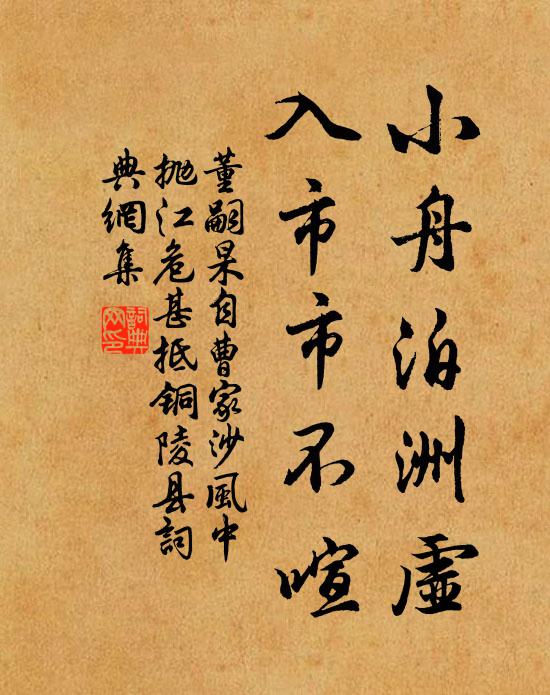 小舟泊洲虛
入市市不喧
董嗣杲自曹家沙風中
拋江危甚抵銅陵县詞
典網集
詞典
网印